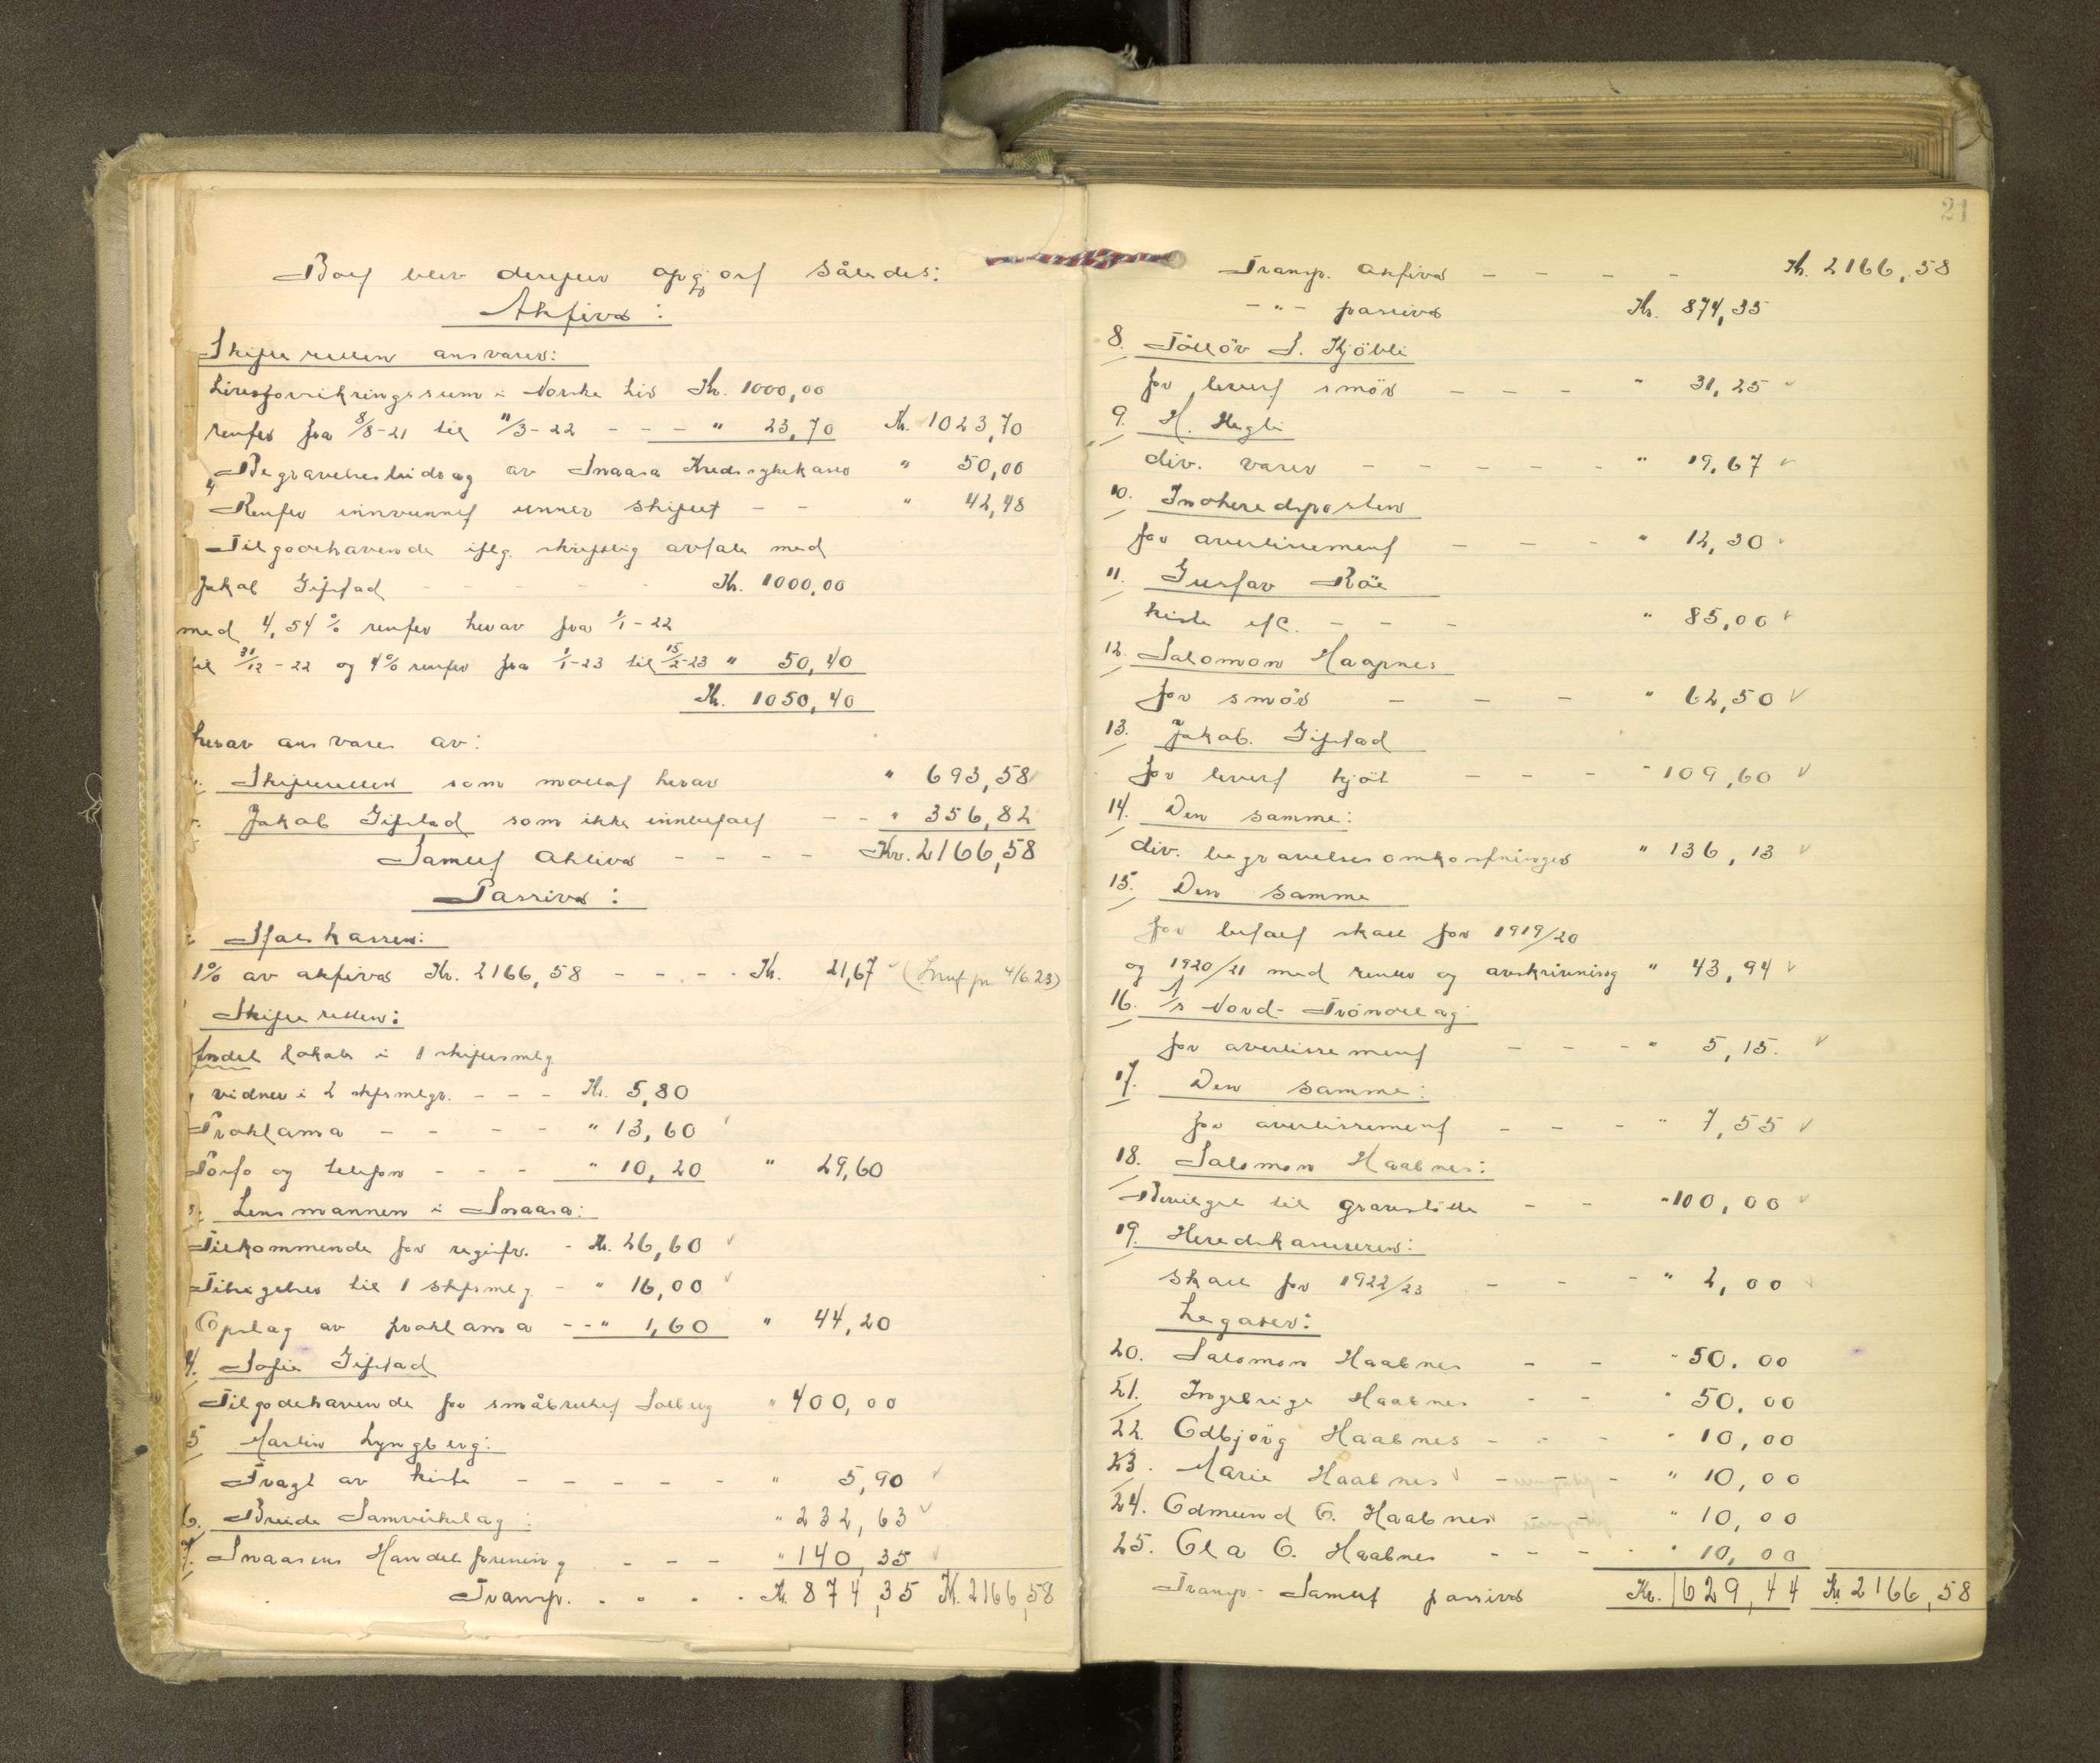 Boet blev derefter opgjort således:
Aktiva:
Skifteretten ansvarer:
Livsforsikringssum i Norske Liv Kr. 1000,00
renter fra 8/8-21 til 11/3-22 - - - " 23,70 Kr. 1023,70
Begravelsesbidrag av Snaasa Kredssykekasse " 50,00
Renter innvunnet unner skiftet - - " 42,48
Tilgodehavende iflg. skriftlig avtale med
Jakob Gifstad - - - - - Kr. 1000,00
med 4,54 % renter herav fra 1/1-22
til 31/12-22 og 4% renter fra 1/1-23 til 15/2-23 " 50,40
Kr. 1050,40
herav ansvares av:
Skifteretten som mottat herav " 693,58
Jakob Gifstad som ikke innbetalt - - " 356,82
Samlet aktiva - - - - Kr. 2166,58
Passiva:
Statskassen:
1% av aktiva Kr. 2166,58 - - - - Kr. 21,67 (Innf pr 4/6.23)
Skifteretten:
Andel lokale i 1 skiftesmlg
vidner i 2 skfsmlgr. - - - Kr. 5,80
Proklama - - - - " 13,60
Porto og telefon - - - " 10,20 " 29,60
3. Lensmannen i Snaasa:
Tilkommende for registr. - Kr. 26,60
Tilsigelser til 1 skfsmlg - " 16,00
Opslag av proklama - - " 1,60 " 44,20
4. Sofie Gifstad
Tilgodehavende for småbruket Solberg " 400,00
5 Martin Lyngberg:
Fragt av kiste - - - - - " 5,90
6. Breide Samvirkelag: " 232,63
7. Snaasens Handelsforening - - - " 140,35
Transp. . . . . Kr. 874,35 Kr. 2166,58
21
Transp. aktiva - - - - Kr. 2166,58
- " - passiva Kr. 874,35
8. Tollöv S. Kjöbli
for levert smör - - - " 31,25
9. H. Hegli
div. varer - - - - - " 19,67
10. Innheredsposten
for avertissement - - - " 12,30
11. Gustav Röe
kiste etc. - - - " 85,00
12. Salomon Haapnes
for smör - - - " 62,50
13. Jakob. Gifstad
for levert kjöt - - - " 109,60
14. Den samme:
div. begravelsesomkostninger " 136,13
15. Den samme
for betalt skatt for 1919/20
og 1920/21 med renter og avskrivning " 43,94
16. A/s Nord-Tröndelag:
for avertissement - - - " 5,15.
17. Den samme:
for avertissement - - - " 7,55
18. Salomon Haabnes:
Bevilget til gravstötte - - " 100,00
19. Heredskassereren:
skatt for 1922/23 - - - " 2,00
Legater:
20. Salomon Haabnes - - " 50.00
21. Ingebrigt Haabnes - - " 50.00
22. Odbjörg Haabnes - - - " 10,00
23. Marie Haabnes - - - " 10,00
24. Odmund O. Haabnes " 10,00
25. Ola O. Haabnes - - - - " 10,00
Transp - Samlet passiva Kr. 1629,44 Kr. 2166,58